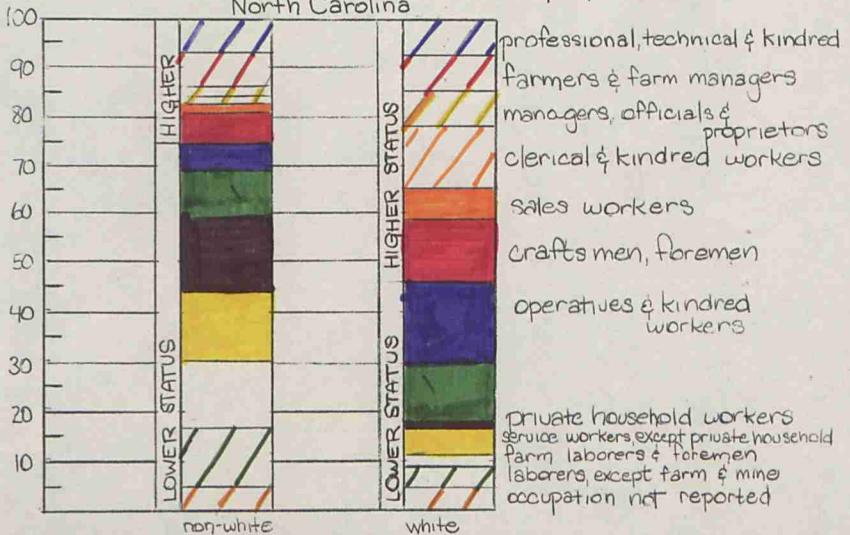 North Carolina
100
90
80
70
60
50
40
30
20
10
HIGHER
LOWER STATUS
HIGHER STATUS
LOWER STATUS
professional, technical & kindred
farmers & farm managers
managers, officials &
proprietors
clerical & kindred workers
sales workers
craftsmen, foremen
operatives & kindred
workers
private household workers
service workers, except private household
farm laborers & foremen
laborers, except farm & mine
occupation not reported
non-white
white